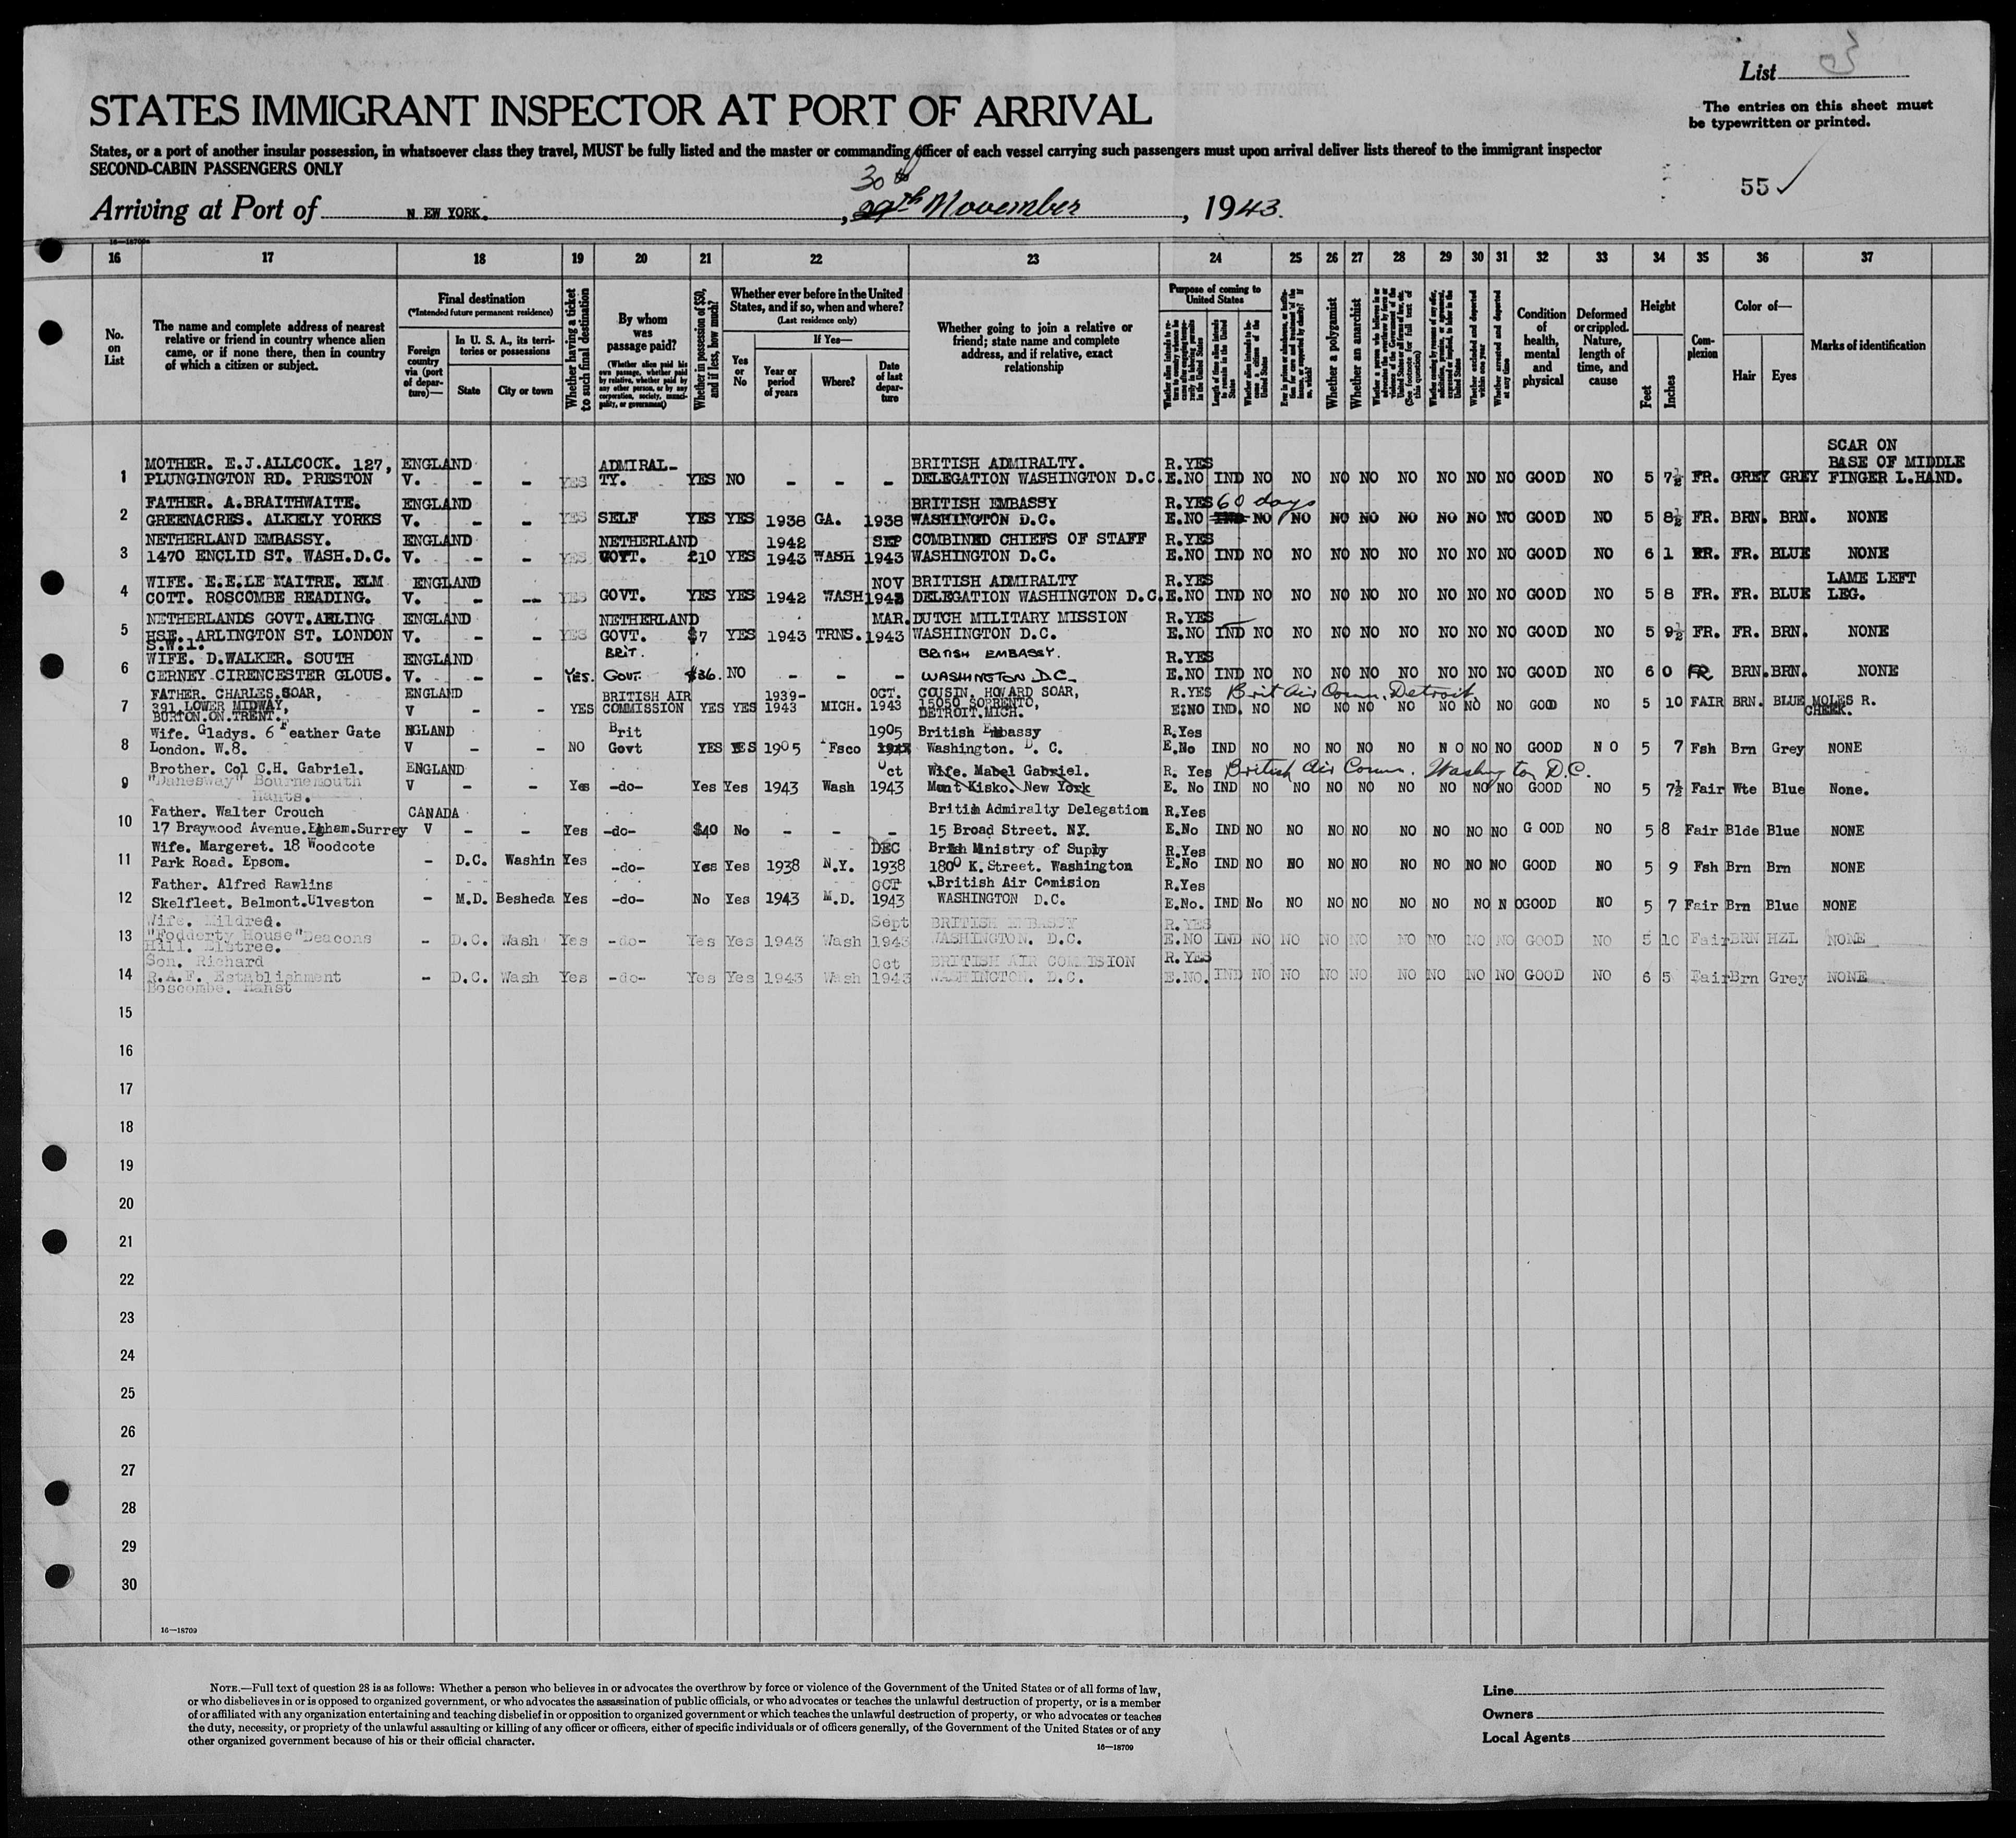 List 3
STATES IMMIGRANT INSPECTOR AT PORT OF ARRIVAL
The entries on this sheet must
be typewritten or printed.
States, or a port of another insular possession, in whatsoever class they travel, MUST be fully listed and the master or commanding officer of each vessel carrying such passengers must upon arrival deliver lists thereof to the immigrant inspector
SECOND-CABIN PASSENGERS ONLY
55 ✓
30th
Arriving at Port of N EW YORK. , 29th November , 1943.
16—18709a
16 17 18 19 20 21 22 23 24 25 26 27 28 29 30 31 32 33 34 35 36 37
No. on List
The name and complete address of nearest relative or friend in country whence alien came, or if none there, then in country of which a citizen or subject.
Final destination
(*Intended future permanent residence)
Foreign country via (port of departure)—
In U. S. A., its territories or possessions
State
City or town
Whether having a ticket to such final destination
By whom was passage paid?
(Whether alien paid his own passage, whether paid by relative, whether paid by any other person, or by any corporation, society, municipality, or government)
Whether in possession of $50, and if less, how much?
Whether ever before in the United States, and if so, when and where?
(Last residence only)
Yes or No
If Yes—
Year or period of years
Where?
Date of last departure
Whether going to join a relative or friend; state name and complete address, and if relative, exact relationship
Purpose of coming to United States
Length of time alien intends to remain in the United States
Whether alien intends to become a citizen of the United States
Whether a polygamist
Whether an anarchist
(See footnote for full text of this question)
Whether excluded and deported within one year
Whether arrested and deported at any time
Condition of health, mental and physical
Deformed or crippled. Nature, length of time, and cause
Height
Feet
Inches
Complexion
Color of—
Hair
Eyes
Marks of identification
1 MOTHER. E.J.ALLCOCK. 127, ENGLAND ADMIRAL- BRITISH ADMIRALTY. R.YES SCAR ON BASE OF MIDDLE
PLUNGINGTON RD. PRESTON V. - - YES TY. YES NO - - - DELEGATION WASHINGTON D.C. E.NO IND NO NO NO NO NO NO NO NO GOOD NO 5 7½ FR. GREY GREY FINGER L.HAND.
2 FATHER. A.BRAITHWAITE. ENGLAND BRITISH EMBASSY R.YES 60 days
GREENACRES. ALKELY YORKS V. - - YES SELF YES YES 1938 GA. 1938 WASHINGTON D.C. E.NO IND NO NO NO NO NO NO NO NO GOOD NO 5 8½ FR. BRN. BRN. NONE
3 NETHERLAND EMBASSY. ENGLAND NETHERLAND 1942 SEP COMBINED CHIEFS OF STAFF R.YES
1470 ENCLID ST. WASH.D.C. V. - - YES GOVT. £10 YES 1943 WASH 1943 WASHINGTON D.C. E.NO IND NO NO NO NO NO NO NO NO GOOD NO 6 1 FR. FR. BLUE NONE
4 WIFE. E.E.LE MAITRE. ELM ENGLAND NOV BRITISH ADMIRALTY R.YES LAME LEFT
COTT. ROSCOMBE READING. V. - -- YES GOVT. YES YES 1942 WASH 1942 DELEGATION WASHINGTON D.C. E.NO IND NO NO NO NO NO NO NO NO GOOD NO 5 8 FR. FR. BLUE LEG.
5 NETHERLANDS GOVT.ARLING ENGLAND NETHERLAND MAR. DUTCH MILITARY MISSION R.YES
HSE. ARLINGTON ST. LONDON V. - - YES GOVT. $7 YES 1943 TRNS. 1943 WASHINGTON D.C. E.NO IND NO NO NO NO NO NO NO NO GOOD NO 5 9½ FR. FR. BRN. NONE
S.W.1.
6 WIFE. D.WALKER. SOUTH ENGLAND BRIT. BRITISH EMBASSY. R.YES
CERNEY CIRENCESTER GLOUS. V. - - YES. GOVT. $36. NO - - - WASHINGTON D.C. E.NO IND NO NO NO NO NO NO NO NO GOOD NO 6 0 FR BRN. BRN. NONE
7 FATHER. CHARLES.SOAR, ENGLAND BRITISH AIR 1939- OCT. COUSIN. HOWARD SOAR, R.YES Brit Air Comm. Detroit
391 LOWER MIDWAY, V - - YES COMMISSION YES YES 1943 MICH. 1943 15050 SORRENTO, E:NO IND. NO NO NO NO NO NO NO NO GOOD NO 5 10 FAIR BRN. BLUE MOLES R. CHEEK.
BURTON.ON.TRENT. DETROIT.MICH.
8 Wife. Gladys. 6 Feather Gate NGLAND Brit 1905 British Embassy R.Yes
London. W.8. V - - NO Govt YES YES 1905 Fsco 1943 Washington. D. C. E.No IND NO NO NO NO NO N O NO NO GOOD N O 5 7 Fsh Brn Grey NONE
9 Brother. Col C.H. Gabriel. ENGLAND Oct Wife. Mabel Gabriel. R. Yes British Air Comm. Washington D.C.
"Danesway" Bournemouth V - - Yes -do- Yes Yes 1943 Wash 1943 Mount Kisko. New York E. No IND NO NO NO NO NO NO NO NO GOOD NO 5 7½ Fair Wte Blue None.
Hants.
10 Father. Walter Crouch CANADA Britih Admiralty Delegation R.Yes
17 Braywood Avenue.Egham.Surrey V - - Yes -do- $40 No - - - 15 Broad Street. NY. E.No IND NO NO NO NO NO NO NO NO G OOD NO 5 8 Fair Blde Blue NONE
11 Wife. Margeret. 18 Woodcote DEC Brish Ministry of Supply R.Yes
Park Road. Epsom. - D.C. Washin Yes -do- Yes Yes 1938 N.Y. 1938 1800 K. Street. Washington E.No IND NO NO NO NO NO NO NO NO GOOD NO 5 9 Fsh Brn Brn NONE
12 Father. Alfred Rawlins OCT British Air Comision R.Yes
Skelfleet. Belmont.Ulveston - M.D. Besheda Yes -do- No Yes 1943 M.D. 1943 WASHINGTON D.C. E.No. IND No NO NO NO NO NO NO N OGOOD NO 5 7 Fair Brn Blue NONE
13 Wife. Mildred. Sept BRITISH EMBASSY R.YES
"Fodderty House"Deacons - D.C. Wash Yes -do- Yes Yes 1943 Wash 1943 WASHINGTON. D.C. E.NO IND NO NO NO NO NO NO NO NO GOOD NO 5 10 Fair BRN HZL NONE
Hill. Elstree.
14 Son. Richard Oct BRITISH AIR COMMISION R.YES
R.A.F. Establishment - D.C. Wash Yes -do- Yes Yes 1943 Wash 1943 WASHINGTON. D.C. E.NO. IND NO NO NO NO NO NO NO NO GOOD NO 6 5 Fair Brn Grey NONE
Boscombe. Hanst
15
16
17
18
19
20
21
22
23
24
25
26
27
28
29
30
16—18709
NOTE.—Full text of question 28 is as follows: Whether a person who believes in or advocates the overthrow by force or violence of the Government of the United States or of all forms of law,
or who disbelieves in or is opposed to organized government, or who advocates the assassination of public officials, or who advocates or teaches the unlawful destruction of property, or is a member
of or affiliated with any organization entertaining and teaching disbelief in or opposition to organized government or which teaches the unlawful destruction of property, or who advocates or teaches
the duty, necessity, or propriety of the unlawful assaulting or killing of any officer or officers, either of specific individuals or of officers generally, of the Government of the United States or of any
other organized government because of his or their official character.
16—18709
Line
Owners
Local Agents